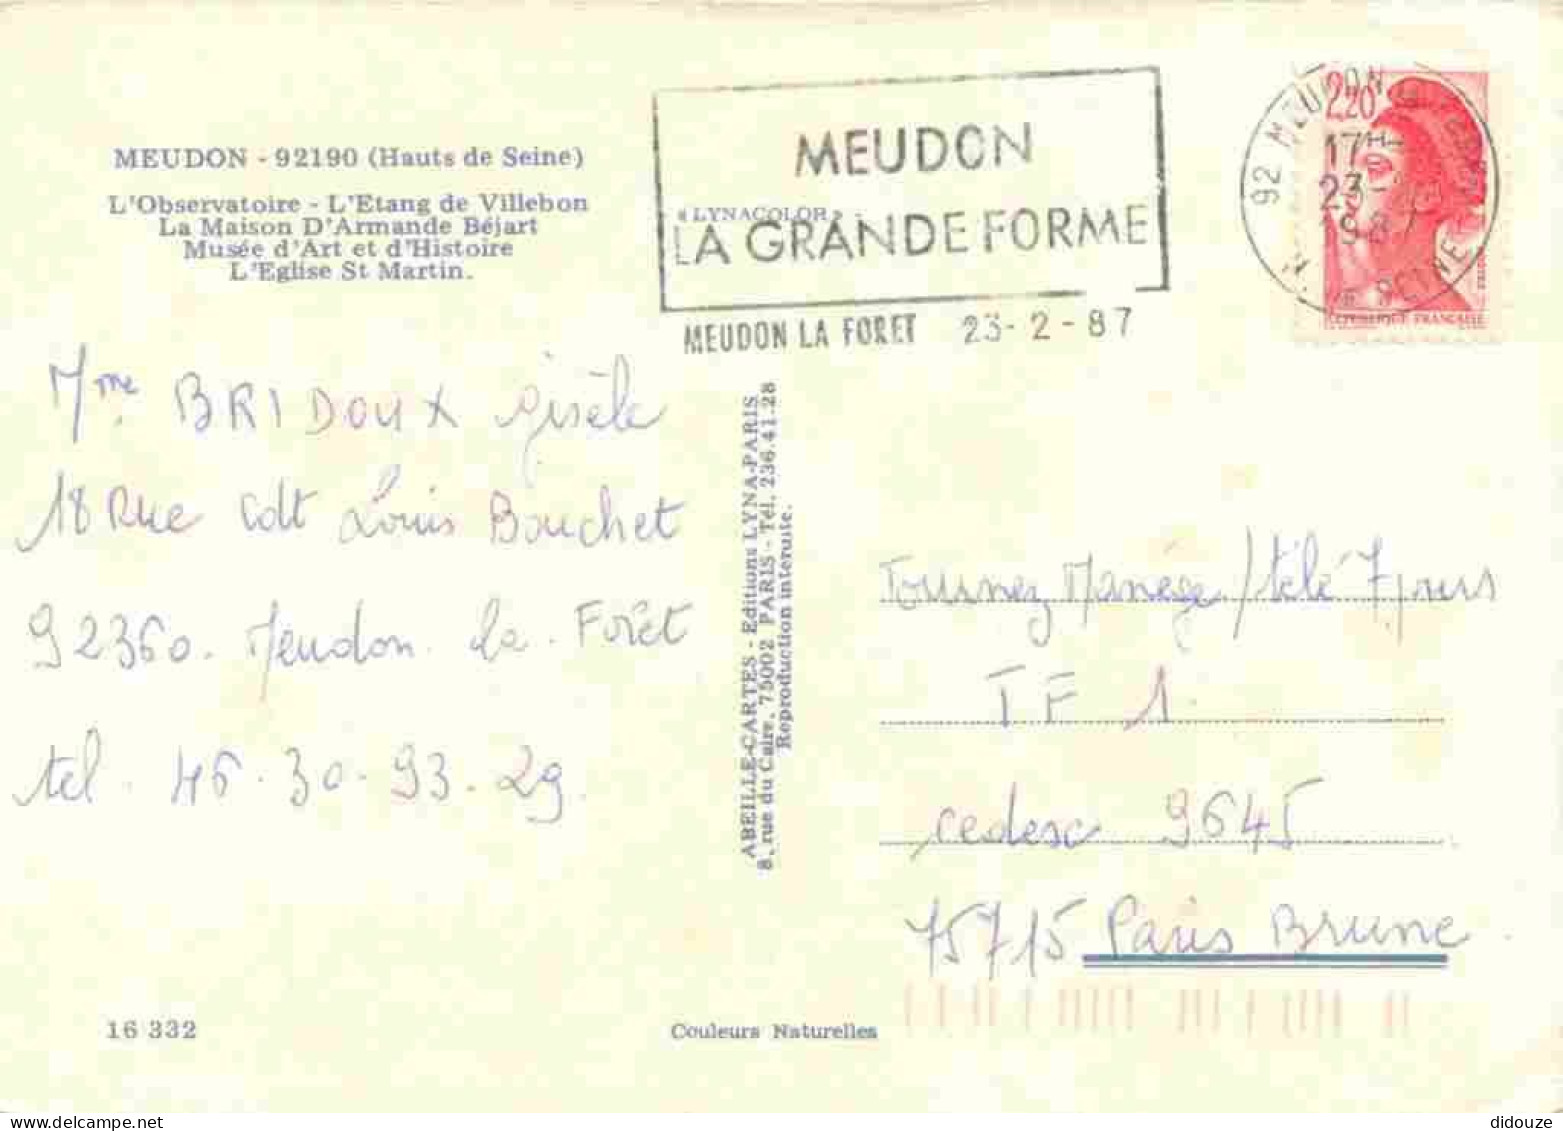 MEUDON - 92190 (Hauts de Seine)
L'Observatoire - L'Etang de Villebon
La Maison D'Armande Béjart
Musée d'Art et d'Histoire
L'Eglise St Martin.
MEUDON
« LYNACOLOR »
LA GRANDE FORME
MEUDON LA FORET 23-2-87
2,20
92 MEUDON
17H
23-
1987
SEINE
REPUBLIQUE FRANÇAISE
Mme BRIDOUX Gisèle
18 Rue Cdt Louis Bouchet
92360. Meudon la Forêt
tel. 46.30.93.29.
ABEILLE-CARTES - Editions LYNA-PARIS
8, rue du Caire, 75002 PARIS - Tél. 236.41.28
Reproduction interdite.
Tournez Manège / télé 7 jours
TF 1
cedesc 9645
75715 Paris Brune
16 332
Couleurs Naturelles
didouze